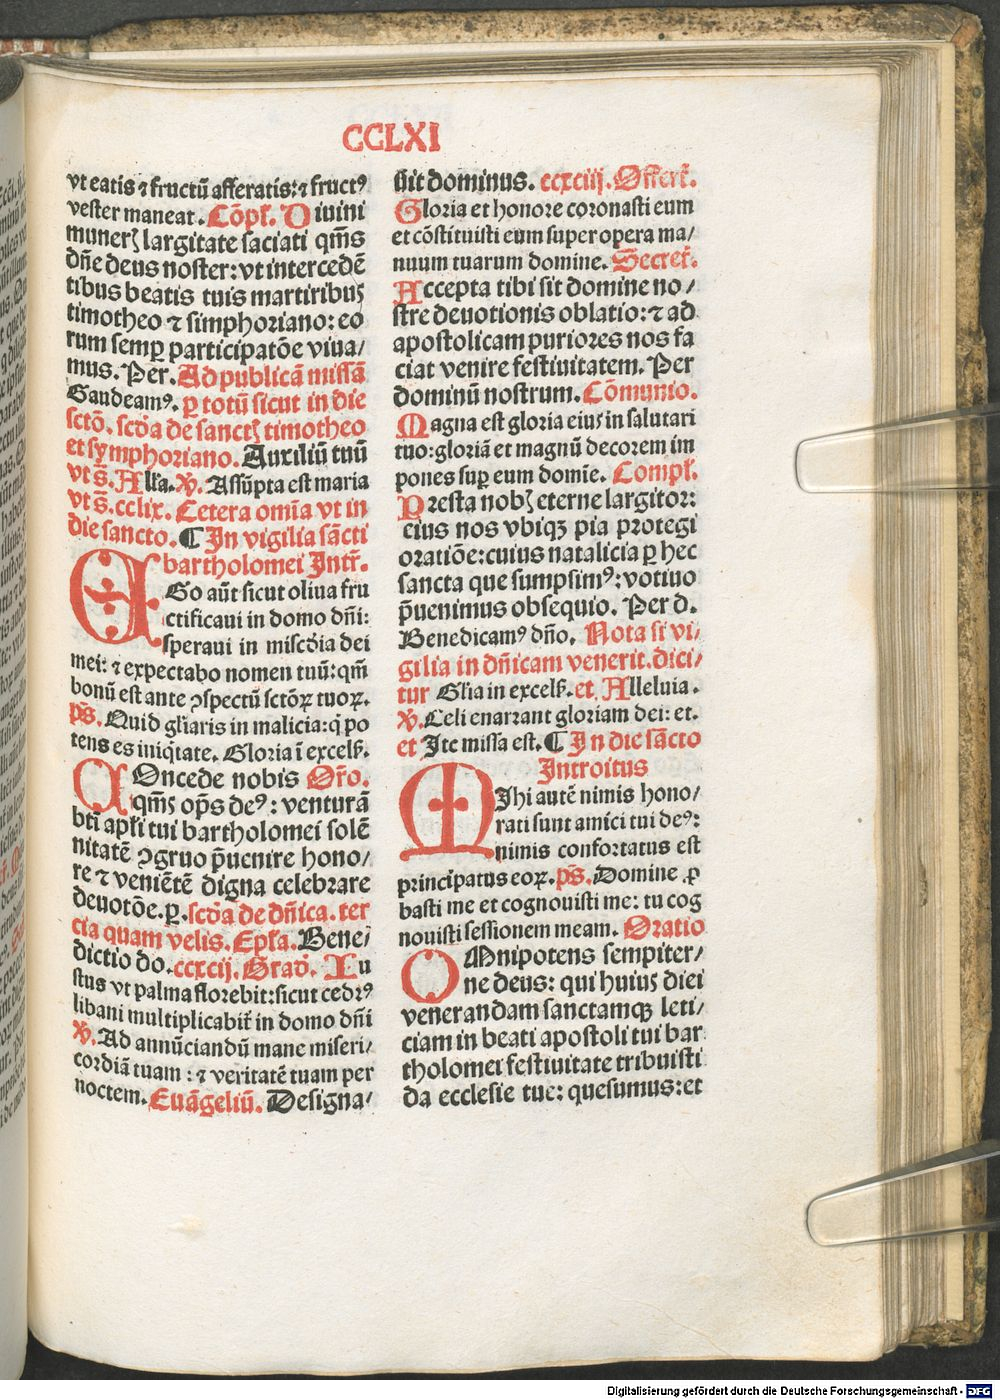 CCLXI
vt eatis ⁊ fructū afferatis: ⁊ fructꝰ
vester maneat. Cōpl̄. Diuini
munerꝭ largitate saciati qm̄s
dn̄e deus noster: vt intercedē
tibus beatis tuis martiribuꝫ
timotheo ⁊ simphoriano: eo
rum semꝑ participatōe viua/
mus. Per. Ad publicā missā
Gaudeamꝰ. ꝑ totū sicut in die
sctō. scd̄a de sanctꝭ timotheo
et symphoriano. Auxiliū tuū
vt s̄. Alľa. ℣. Assūpta est maria
vt s̄. cclix. Cetera om̄ia vt in
die sancto. ¶ In vigilia sācti
bartholomei Intr̄.
EGo aūt sicut oliua fru
ctificaui in domo dn̄i:
speraui in misc̄dia dei
mei: ⁊ expectabo nomen tuū: qm̄
bonū est ante ↄspectū sctōꝝ tuoꝝ.
ps̄. Quid gľiaris in malicia: q̇ po
tens es iniq̇tate. Gloria ī excelꝭ.
COncede nobis Or̄o.
qm̄s op̄s deꝰ: venturā
bti̇ apľi tui bartholomei solē
nitatē ↄgruo p̄uenire hono/
re ⁊ veniētē digna celebrare
deuotōe. ꝑ. scd̄a de dn̄ica. ter
cia quam velis. Epľa. Bene/
dictio do. ccxcij. Grad̄. Iu
stus vt palma florebit: sicut cedrꝰ
libani multiplicabit̄ in domo dn̄i
℣. Ad annūciandū mane miseri/
cordiā tuam: ⁊ veritatē tuam per
noctem. Euāgeliū. Designa/
uit dominus. ccxciij. Offert̄.
Gloria et honore coronasti eum
et cōstituisti eum super opera ma/
nuum tuarum domine. Secret̄.
Accepta tibi sit domine no/
stre deuotionis oblatio: ⁊ ad
apostolicam puriores nos fa
ciat venire festiuitatem. Per
dominū nostrum. Cōmunio.
Magna est gloria eiuꝰ in salutari
tuo: gloriā et magnū decorem im
pones suꝑ eum domīe. Compľ.
Presta nobꝭ eterne largitor:
eius nos vbiqꝫ pia protegi
oratiōe: cuius natalicia ꝑ hec
sancta que sumpsimꝰ: votiuo
p̄uenimus obsequio. Per d.
Benedicamꝰ dn̄o. Nota si vi/
gilia in dn̄icam venerit. dici/
tur Gľia in excelꝭ. et Alleluia.
℣. Celi enarrant gloriam dei: et.
et Ite missa est. ¶ In die sācto
Introitus
MIhi autē nimis hono/
rati sunt amici tui deꝰ:
nimis confortatus est
principatus eoꝝ. ps̄. Domine ꝓ
basti me et cognouisti me: tu cog
nouisti sessionem meam. Oratio
OMnipotens sempiter/
ne deus: qui huiuꝰ diei
venerandam sanctamqꝫ leti/
ciam in beati apostoli tui bar
tholomei festiuitate tribuisti
da ecclesie tue: quesumus: et
Digitalisierung gefördert durch die Deutsche Forschungsgemeinschaft - DFG